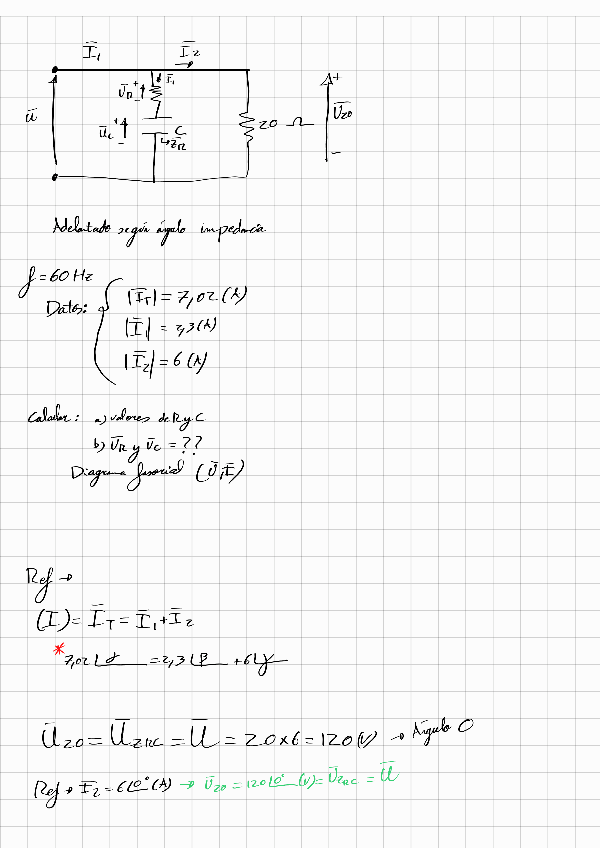 Ī₁ Ī₂
I₁
Ū_R +
-
ū Ū_C + C 20 Ω + Ū₂₀
- Z_R -
Adelantado según ángulo impedancia
f = 60 Hz
Datos: |Ī_T| = 7,02 (A)
|Ī₁| = 2,3 (A)
|Ī₂| = 6 (A)
Calcular: a) valores de R y C
b) Ū_R y Ū_C = ??
Diagrama fasorial (Ū, Ī)
Ref →
(I) = Ī_T = Ī₁ + Ī₂
* 7,02 ∠α = 2,3 ∠β + 6 ∠γ
Ū₂₀ = Ū_ZRC = Ū = 20 x 6 = 120 (V) → Ángulo 0
Ref → Ī₂ = 6 ∠0° (A) → Ū₂₀ = 120 ∠0° (V) = Ū_ZRC = Ū